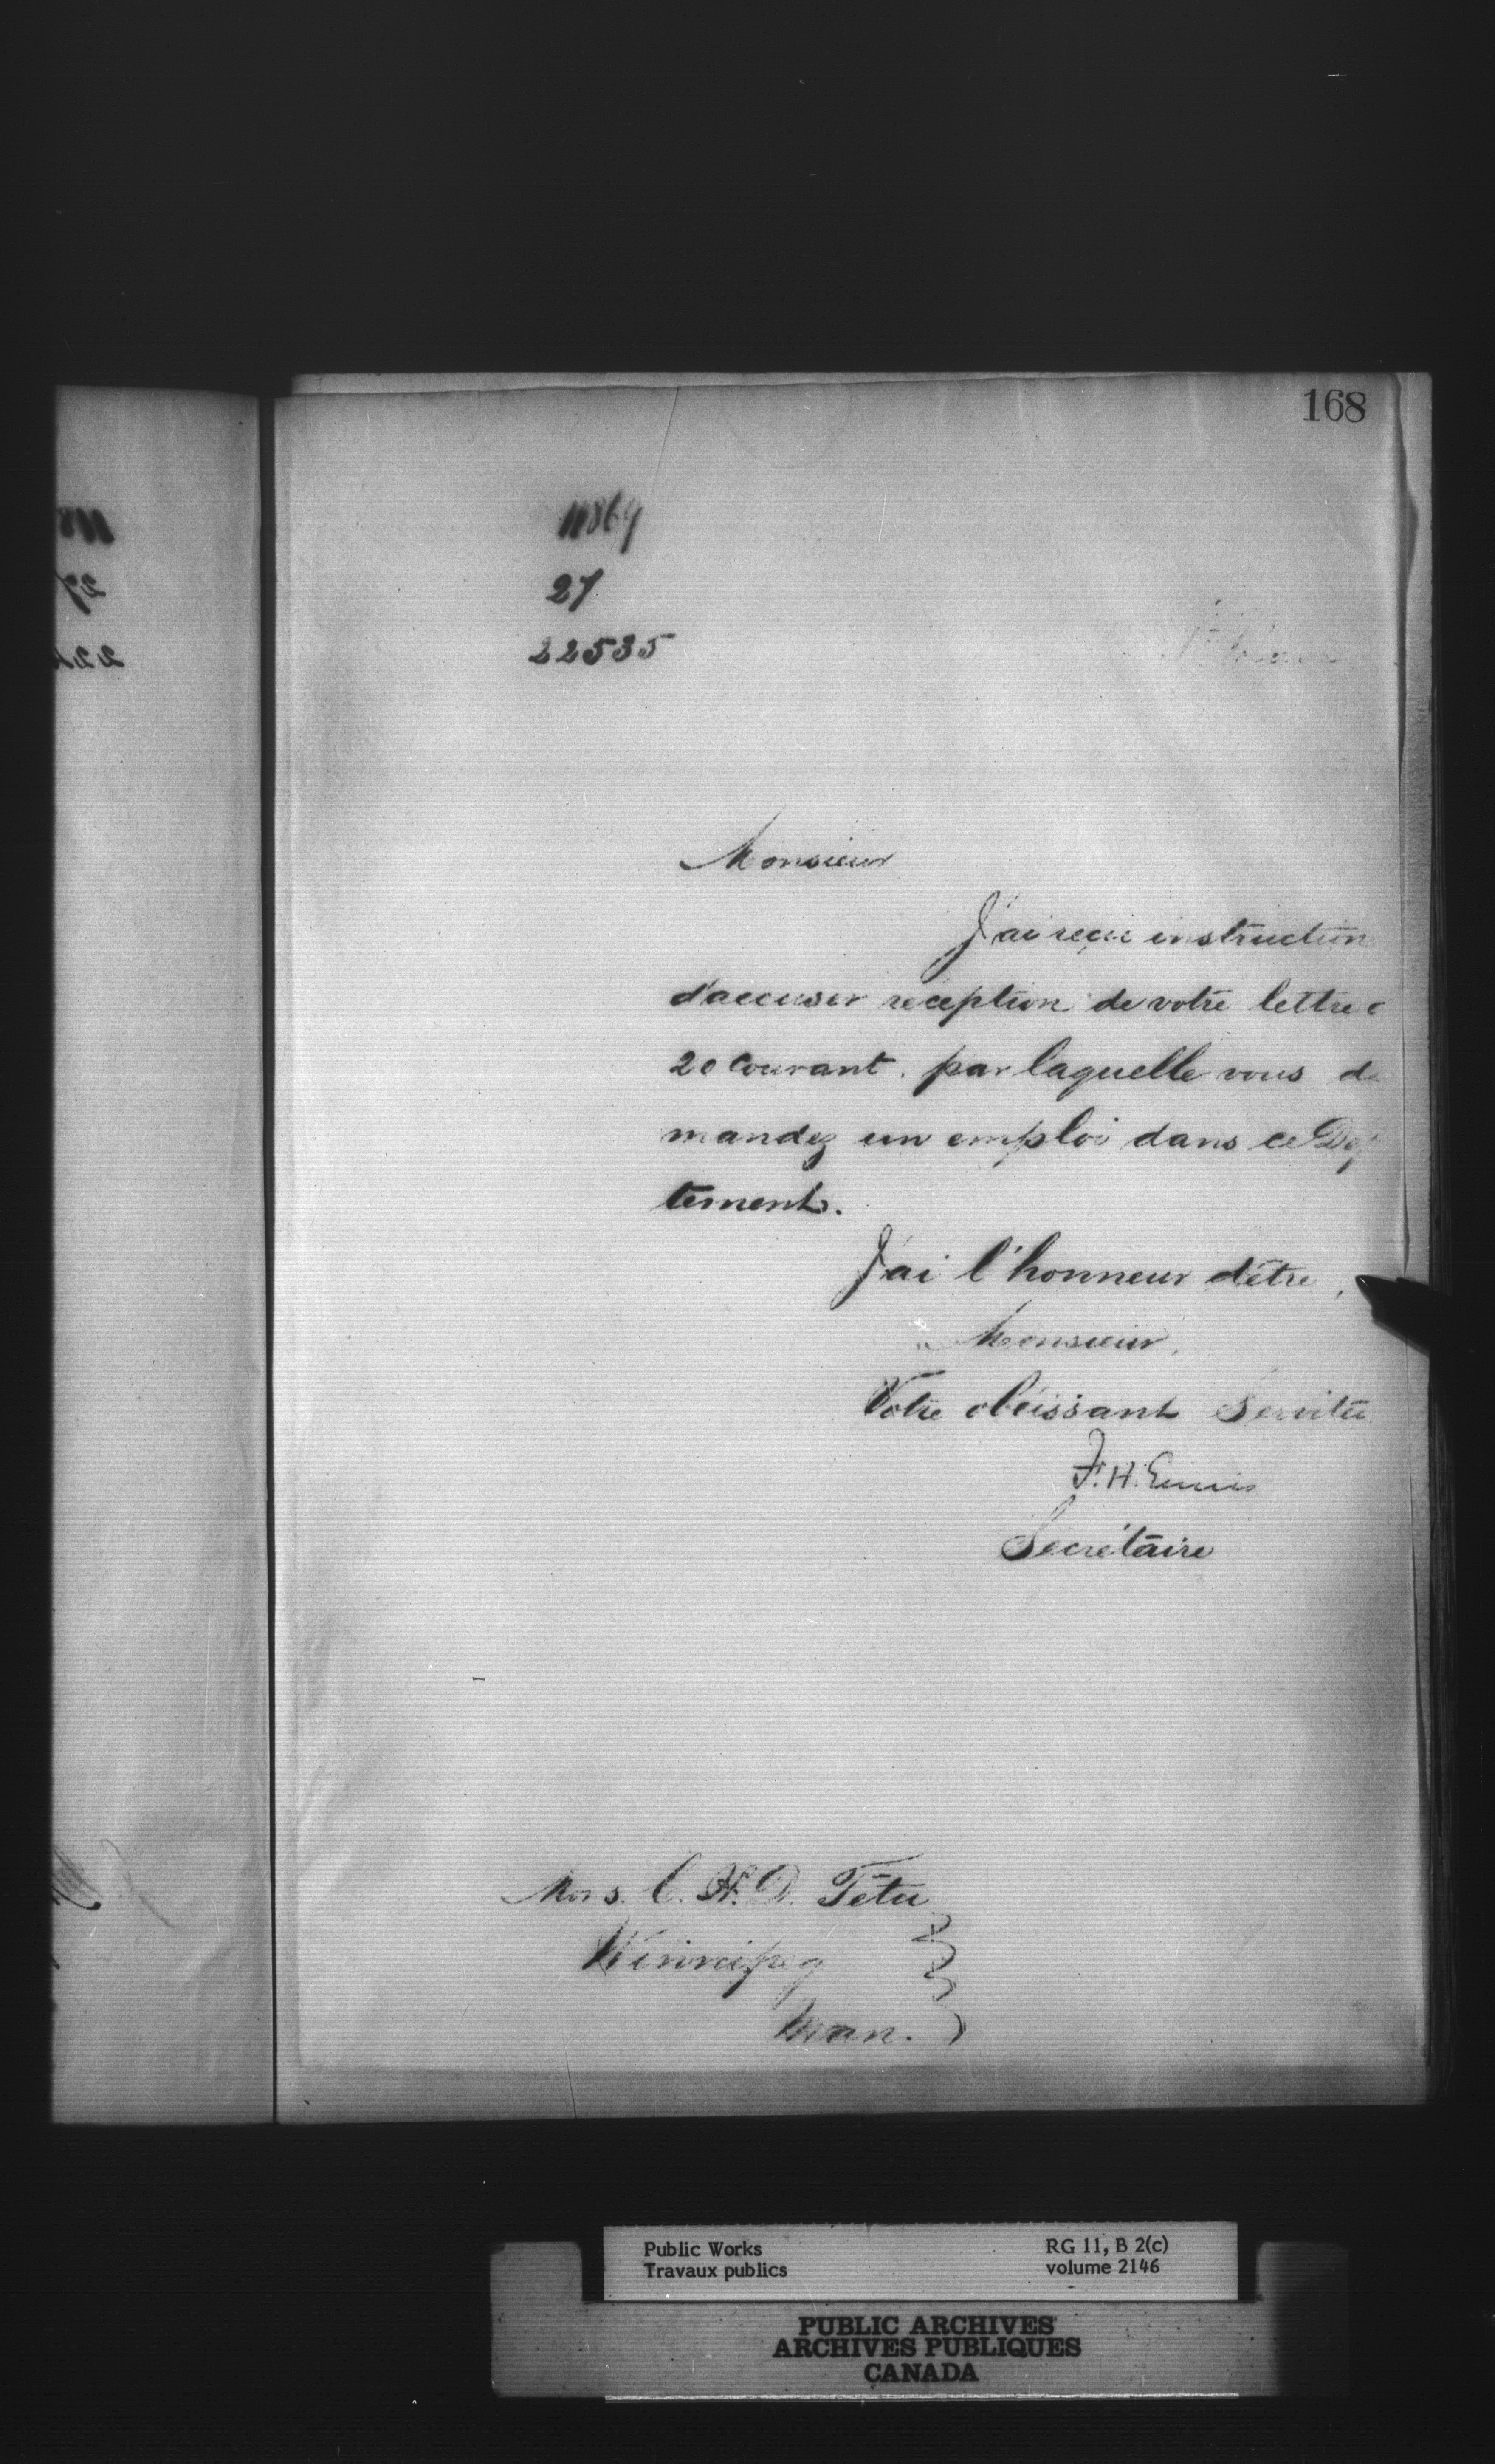 168
11869
27
22535
Monsieur
J'ai reçu instruction
d'accuser réception de votre lettre
20 Courant. par laquelle vous de
mandez un emploi dans ce Dep
tement.
J'ai l'honneur d'être,
Monsieur,
Votre obéissant Servite
F. H. Ennis
Secrétaire
Mons. C. H. D. Têtu
Winnipeg
Man.
Public Works
Travaux publics
RG 11, B 2(c)
volume 2146
PUBLIC ARCHIVES
ARCHIVES PUBLIQUES
CANADA